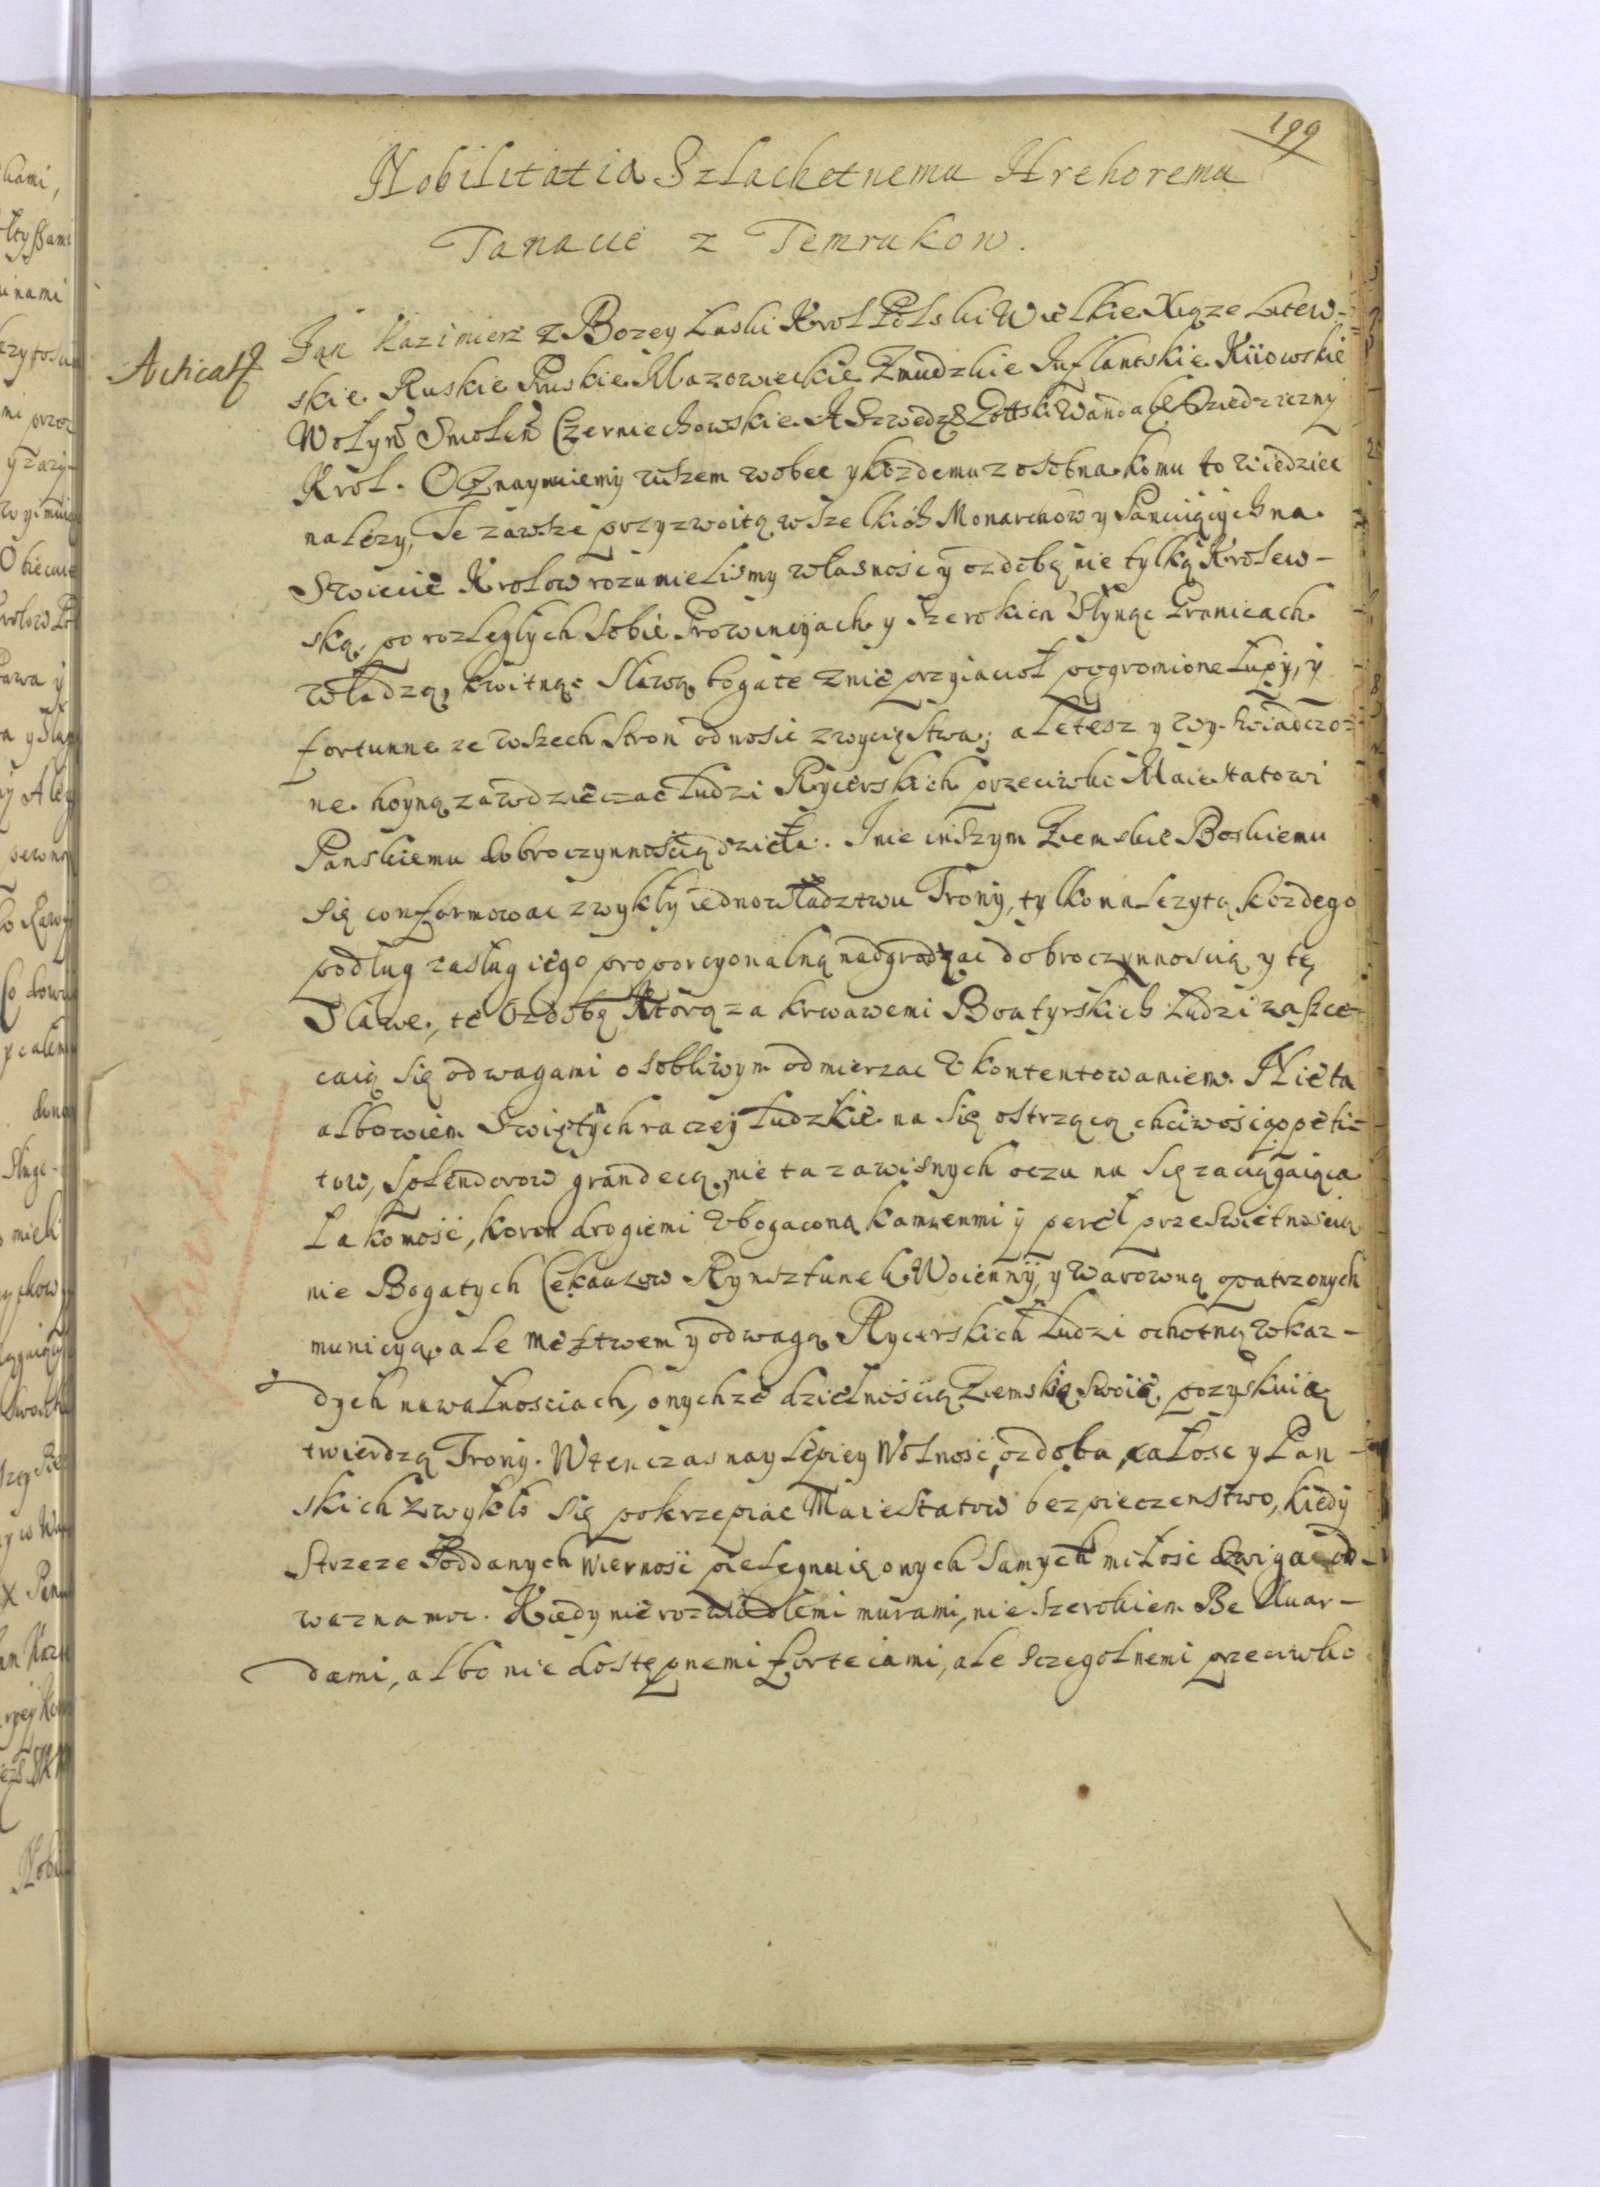 199
Nobilitatia Szlachetnemu Hrehoremu
Tanacie z Temrukow.
Jan Kazimierz z Bozey Łaski Krol Polski Wielkie Xiąze Litew-
skie Ruskie Pruskie Mazowieckie Zmudzkie Inflantskie Kiiowskie
Wołyn Smolen Czerniechowskie A Szwedz Gottski Wandal Dziedziczny
Krol. Oznaymuiemy wszem wobec y kozdemu z osobna komu to wiedziec
nalezy, Ze zawsze przyzwoitą wszelkich Monarchow y Panuiących na
Swiecie Krolow rozumielismy własnosc y ozdobę nie tylką Krolew-
ską, po rozległych sobie Prowincyach y szerokich słynąc Granicach
władzą, kwitnąc Sławą bogate z nieprzyiacioł pogromione łupy, y
fortunne ze wszech stron odnosic zwycięstwa; ale tesz y wyswiadczo-
ne hoyną zawdzięczac ludzi Rycerskich przeciwko Maiestatowi
Panskiemu dobroczynnoscią dzieła. I nie inszym Ziemskie Boskiemu
się conformowac zwykły iednowładztwu Trony, tylko nalezytą kozdego
podług zasług iego proporcyonalną nadgradzac dobroczynnoscią y tę
Sławe, te Ozdobę Ktorą za krwawemi Boatyrskich ludzi zaszce-
caią się odwagami osobliwym odmierzac ukontentowaniem. Nie ta
albowiem Swiętych raczey ludzkie na się ostrzącą chciwosc appeti-
tow, splendorow grandecą, nie ta zawisnych oczu na się zaciągaiąca
łakomosc, koron drogiemi ubogaconą kamienmi y pereł przeswietnoscią
nie Bogatych Cekauzow Rynsztunek Woienny, y warowną opatrzonych
municyą, ale męztwem y odwagą Rycerskich ludzi ochotną w kaz-
dych nawałnosciach, onychze dzielnoscią Ziemskie swoie pozyskuią
twierdzą Trony. Wtenczas naylepiey Wolnosc, ozdoba, całosc y Pan-
skich zwykło się pokrzepiac Maiestatow bezpieczenstwo, kiedy
Strzeze Poddanych wiernosc pielegnuie onych samych miłosc dzwiga od-
wazna moc. Kiedy nie rozwiodłemi murami, nie szerokiem Be luar-
dami, albo niedostępnemi fortecami, ale sczegolnemi przeciwko